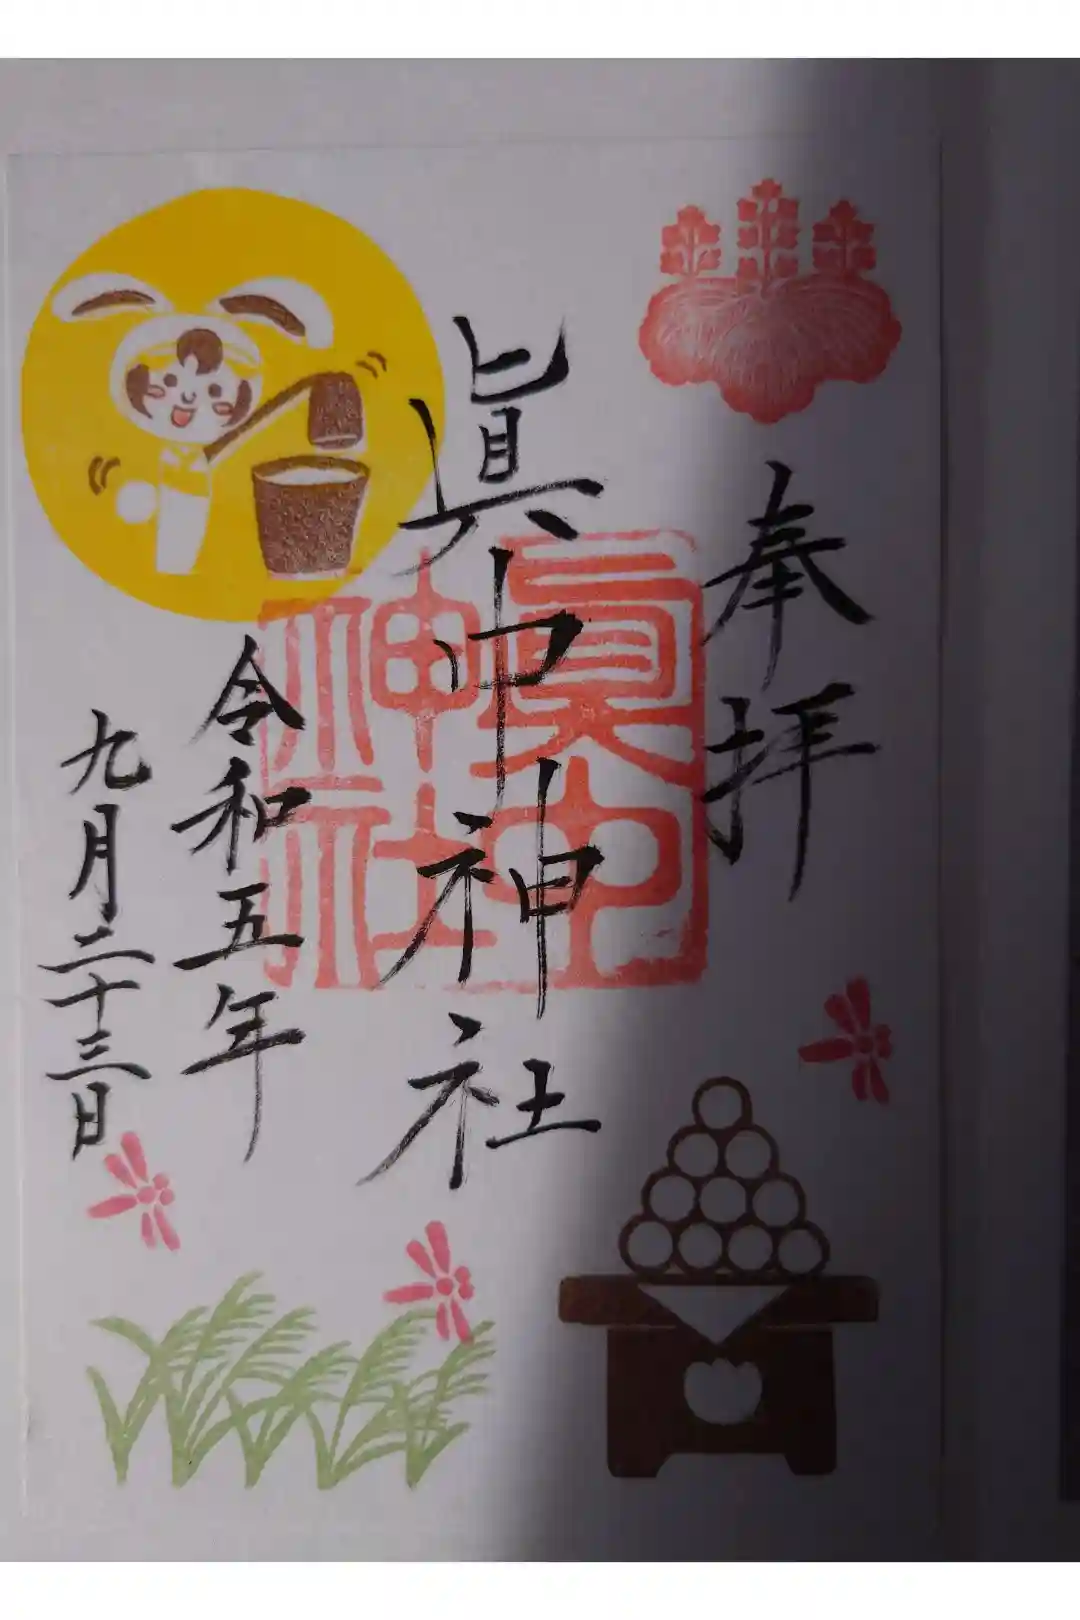 奉拝
眞中神社
眞中神社
令和五年
九月二十三日